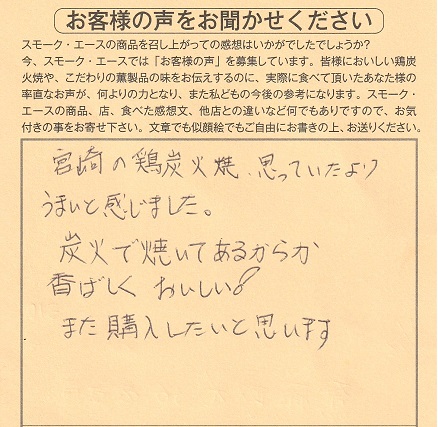 お客様の声をお聞かせください
スモーク・エースの商品を召し上がっての感想はいかがでしたでしょうか?
今、スモーク・エースでは「お客様の声」を募集しています。皆様においしい鶏炭
火焼や、こだわりの薫製品の味をお伝えするのに、実際に食べて頂いたあなた様の
率直なお声が、何よりの力となり、また私どもの今後の参考になります。スモーク・
エースの商品、店、食べた感想文、他店との違いなど何でもありですので、お気
付きの事をお寄せ下さい。文章でも似顔絵でもご自由にお書きの上、お送りください。
宮崎の鶏炭火焼、思っていたより
うまいと感じました。
炭火で焼いてあるからか
香ばしく おいしい!
また購入したいと思います